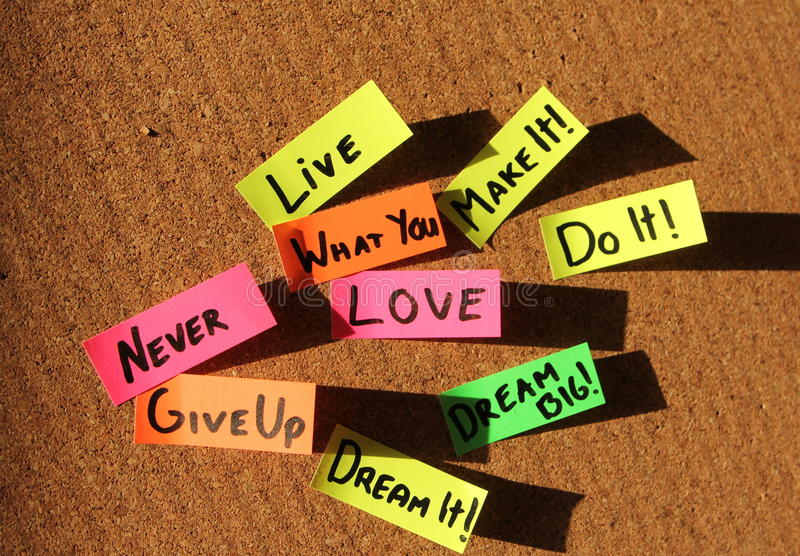 Live
What You
Love
Make It!
Do It!
Never
Give Up
Dream
Big!
Dream It!
dreamstime